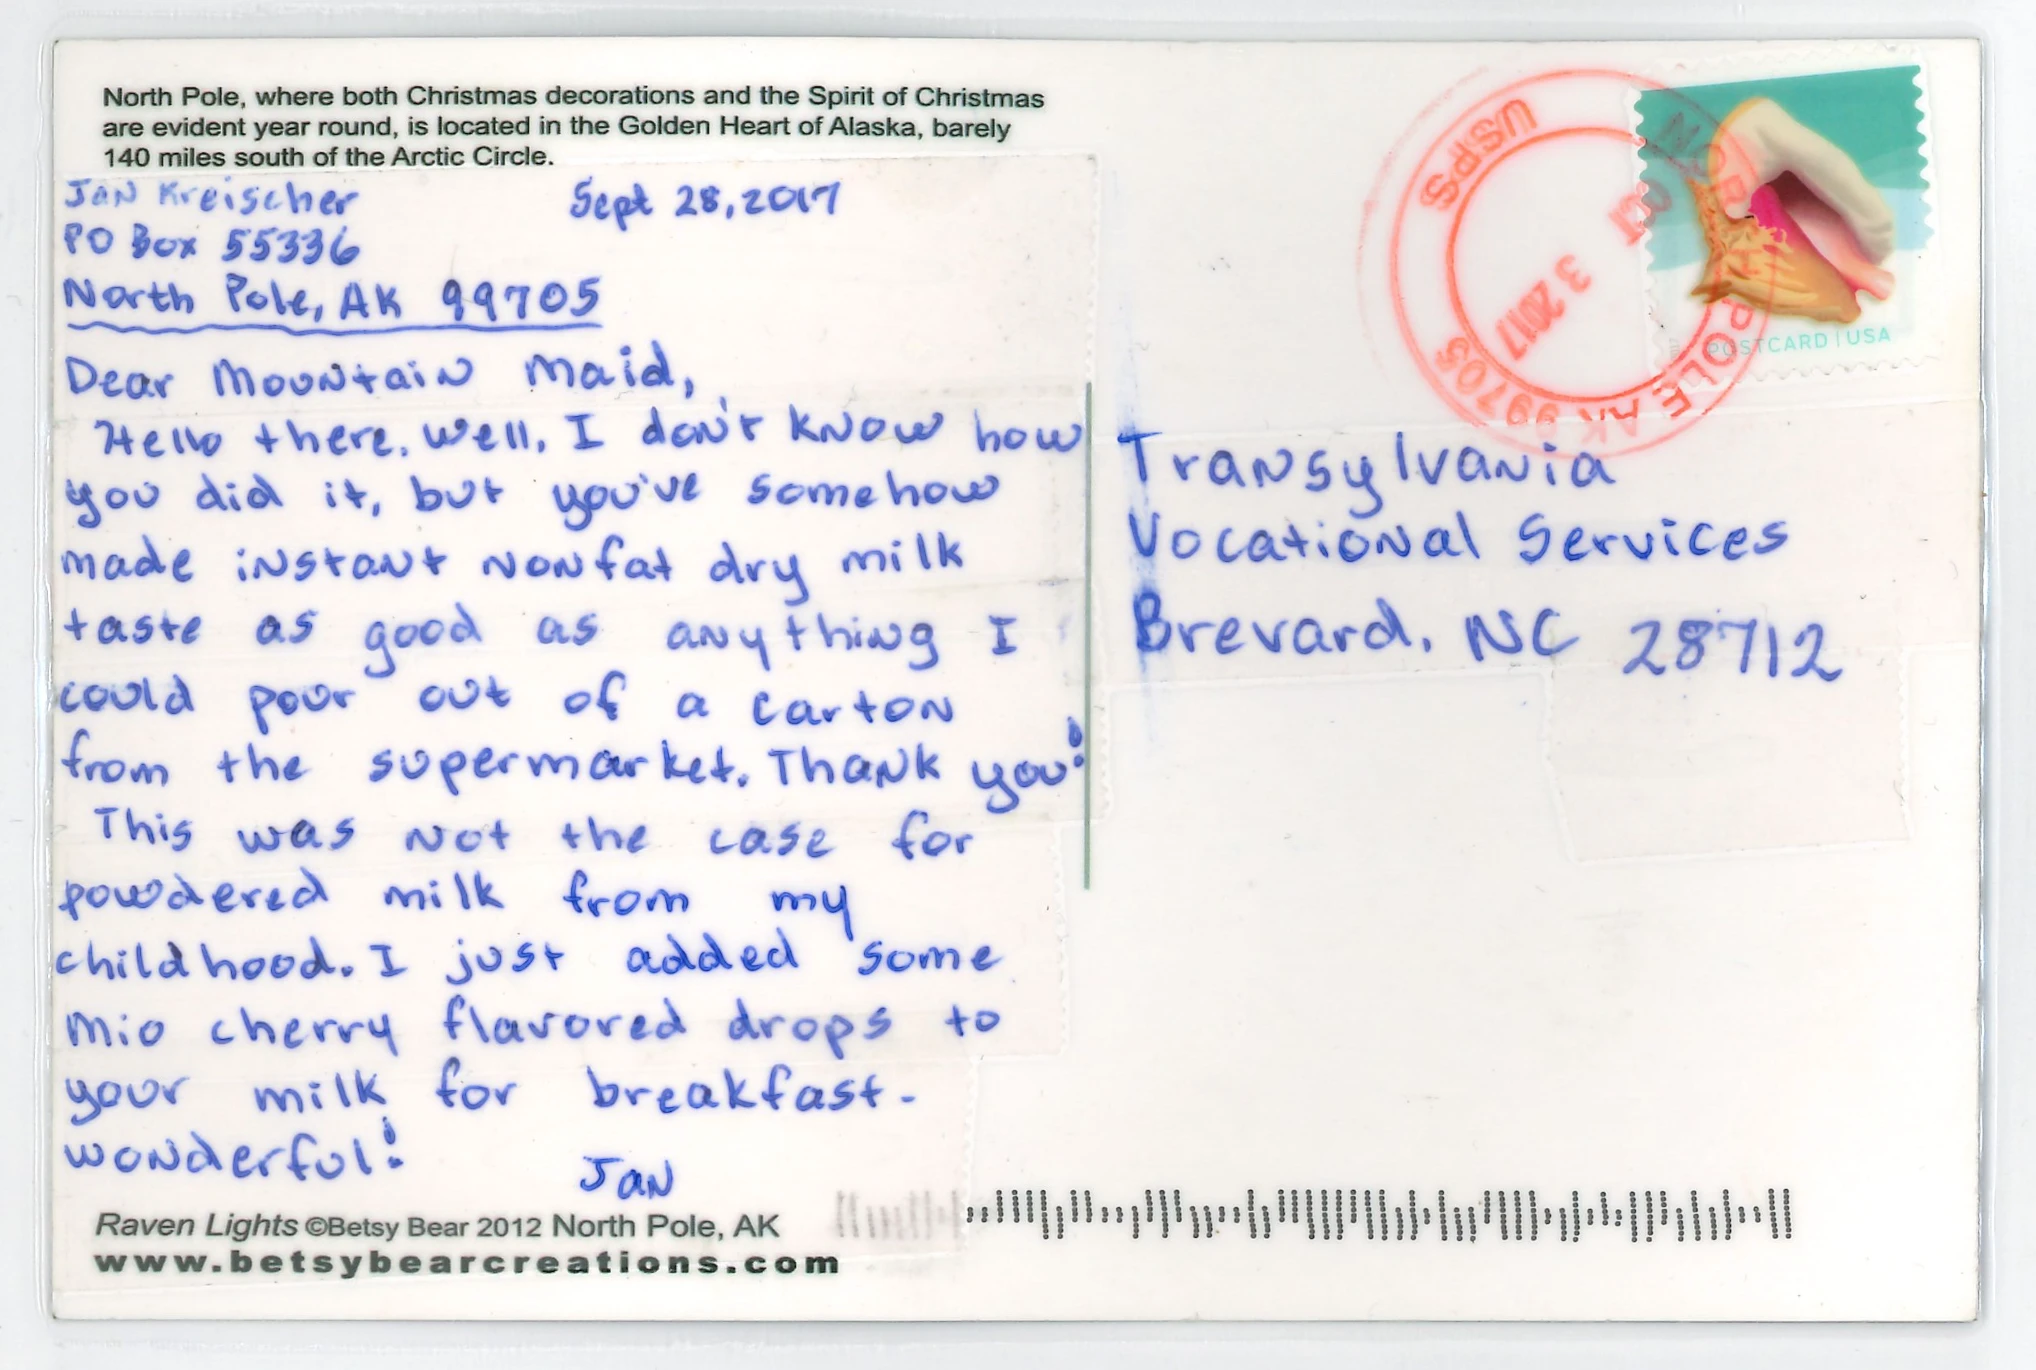 North Pole, where both Christmas decorations and the Spirit of Christmas
are evident year round, is located in the Golden Heart of Alaska, barely
140 miles south of the Arctic Circle.
Jan Kreischer Sept 28, 2017
PO Box 55336
North Pole, AK 99705
Dear Mountain Maid,
Hello there. Well, I don't know how
you did it, but you've somehow
made instant nonfat dry milk
taste as good as anything I
could pour out of a carton
from the supermarket. Thank you!
This was not the case for
powdered milk from my
childhood. I just added some
Mio cherry flavored drops to
your milk for breakfast-
wonderful!
Jan
Raven Lights ©Betsy Bear 2012 North Pole, AK
www.betsybearcreations.com
USPS
NORTH POLE AK 99705
OCT
3 2017
POSTCARD | USA
Transylvania
Vocational Services
Brevard, NC 28712